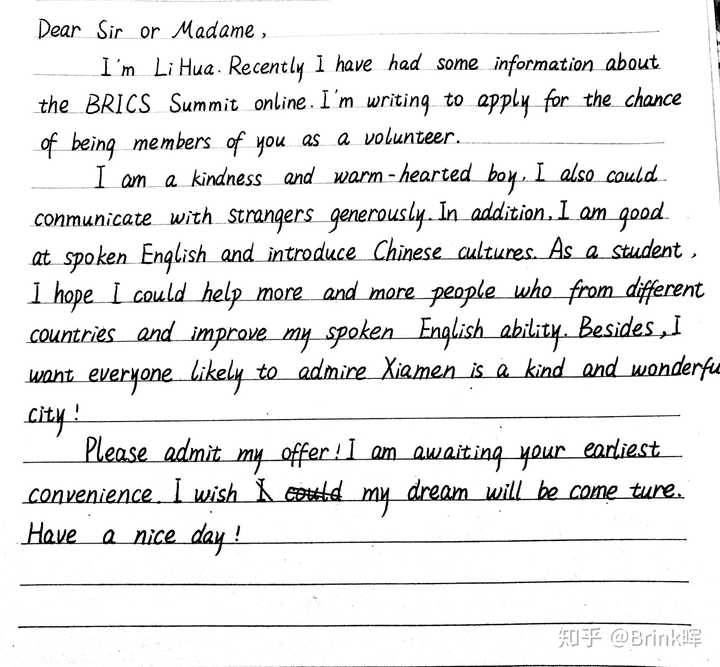 Dear Sir or Madame,
I'm Li Hua. Recently I have had some information about
the BRICS Summit online. I'm writing to apply for the chance
of being members of you as a volunteer.
I am a kindness and warm-hearted boy. I also could
conmunicate with strangers generously. In addition, I am good
at spoken English and introduce Chinese cultures. As a student,
I hope I could help more and more people who from different
countries and improve my spoken English ability. Besides, I
want everyone likely to admire Xiamen is a kind and wonderfu
city!
Please admit my offer! I am awaiting your earliest
convenience. I wish I could my dream will be come ture.
Have a nice day!
知乎 @Brink晖